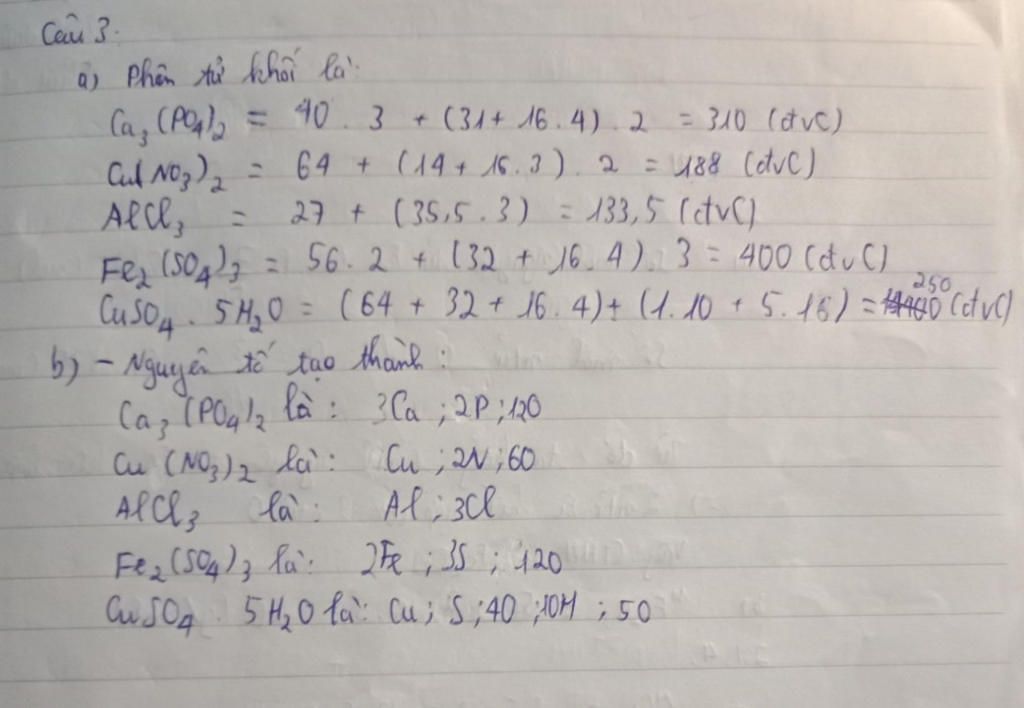 Câu 3.
a) Phân tử khối là:
Ca₃(PO₄)₂ = 40 . 3 + (31 + 16 . 4) . 2 = 310 (đvC)
Cu(NO₃)₂ = 64 + (14 + 16 . 3) . 2 = 188 (đvC)
AlCl₃ = 27 + (35,5 . 3) = 133,5 (đvC)
Fe₂(SO₄)₃ = 56 . 2 + (32 + 16 . 4) . 3 = 400 (đvC)
CuSO₄ . 5H₂O = (64 + 32 + 16 . 4) + (1.10 + 5 . 16) = 250 (đvC)
b) - Nguyên tố tạo thành :
Ca₃(PO₄)₂ là : 3Ca ; 2P ; 12O
Cu(NO₃)₂ là : Cu ; 2N ; 6O
AlCl₃ là : Al ; 3Cl
Fe₂(SO₄)₃ là : 2Fe ; 3S ; 12O
CuSO₄ . 5H₂O là : Cu ; S ; 4O ; 10H ; 5O